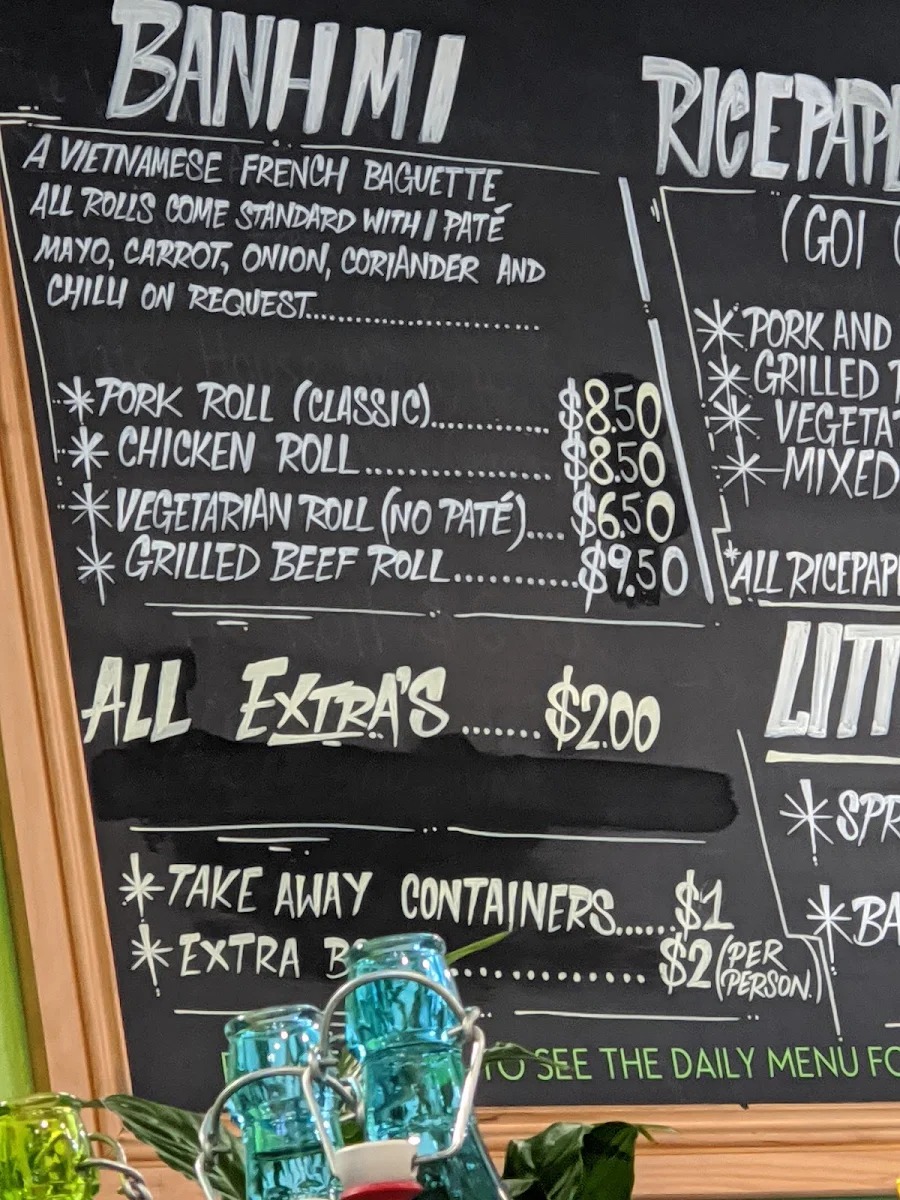 BANH MI
A VIETNAMESE FRENCH BAGUETTE
ALL ROLLS COME STANDARD WITH / PATÉ
MAYO, CARROT, ONION, CORIANDER AND
CHILLI ON REQUEST..............................
*PORK ROLL (CLASSIC)............ $8.50
* CHICKEN ROLL.................. $8.50
*VEGETARIAN ROLL (NO PATÉ).... $6.50
* GRILLED BEEF ROLL............ $9.50
ALL EXTRA'S ...... $2.00
*TAKE AWAY CONTAINERS...... $1
*EXTRA ............ $2 (PER PERSON.)
(GOI
*PORK AND
*GRILLED
*
*MIXED
*ALL
*
*
TO SEE THE DAILY MENU